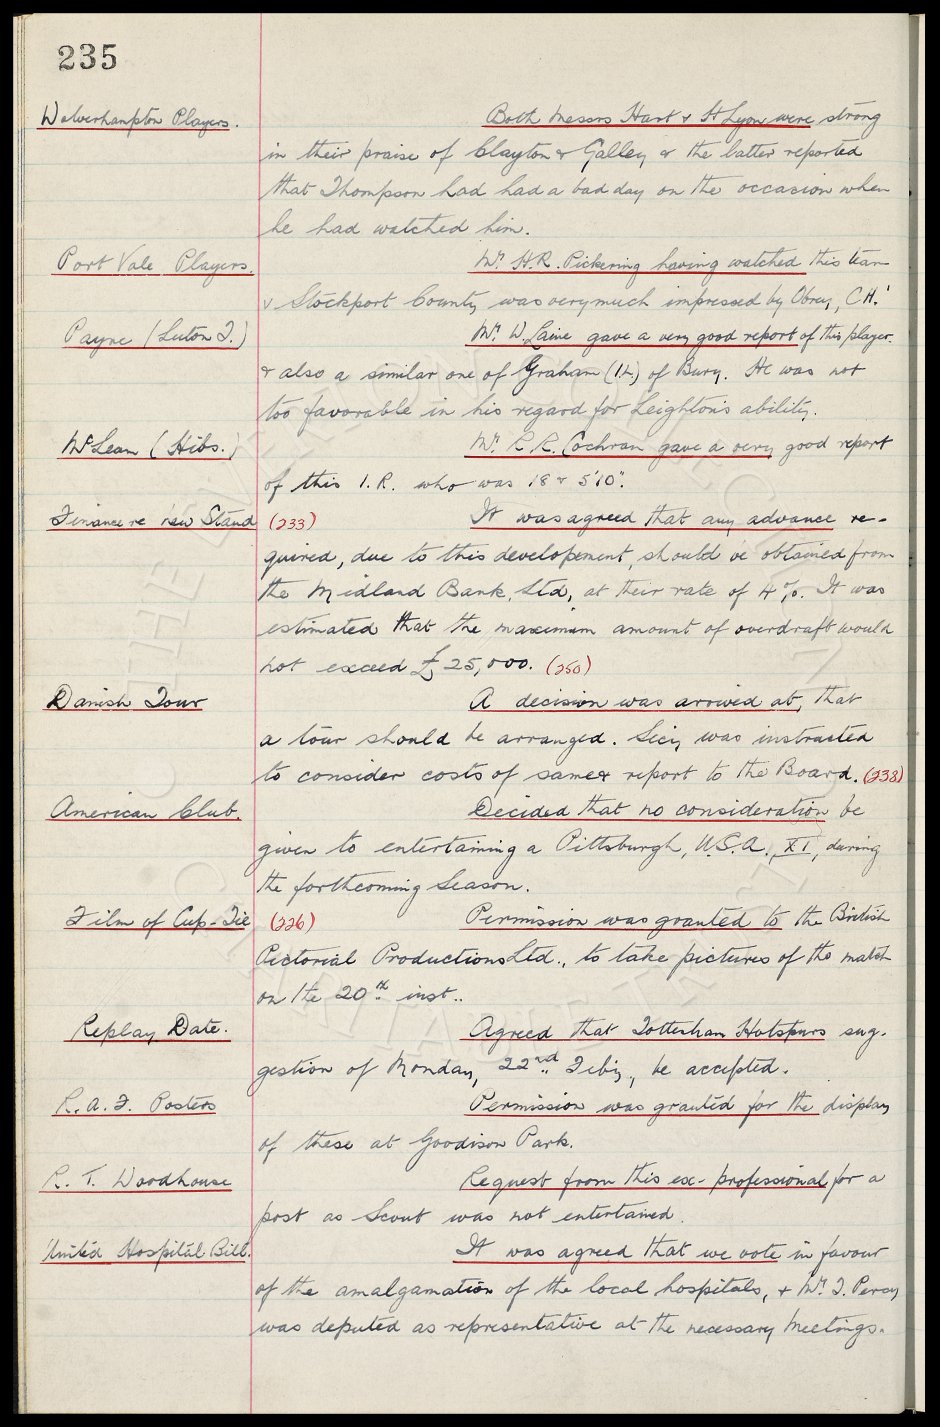 235
Wolverhampton Players. Both Messrs Hart & St Lyon were strong
in their praise of Clayton & Galley & the latter reported
that Thompson had had a bad day on the occasion when
he had watched him.
Port Vale Players. Mr. H.R. Pickering having watched this team
& Stockport County, was very much impressed by Obrey, C.H.
Payne (Luton T.) Mr. W. Laine gave a very good report of this player.
& also a similar one of Graham (I.L.) of Bury. He was not
too favorable in his regard for Leighton's ability.
McLean (Hibs.) Mr. R.R. Cochran gave a very good report
of this I.R. who was 18 & 5'10".
Finance re new Stand (233) It was agreed that any advance re-
quired, due to this developement, should be obtained from
the Midland Bank, Ltd, at their rate of 4%. It was
estimated that the maximum amount of overdraft would
not exceed £25,000. (250)
Danish Tour A decision was arrived at, that
a tour should be arranged. Secy was instructed
to consider costs of same & report to the Board. (238)
American Club. Decided that no consideration be
given to entertaining a Pittsburgh, U.S.A., XI, during
the forthcoming Season.
Film of Cup-Tie (226) Permission was granted to the British
Pictorial Productions Ltd., to take pictures of the match
on the 20th inst..
Replay Date. Agreed that Tottenham Hotspurs sug-
gestion of Monday, 22nd Feby., be accepted.
R.A.F. Posters Permission was granted for the display
of these at Goodison Park.
R.T. Woodhouse Request from this ex-professional for a
post as Scout was not entertained.
United Hospital Bill. It was agreed that we vote in favour
of the amalgamation of the local hospitals, & Mr. T. Percy
was deputed as representative at the necessary Meetings.